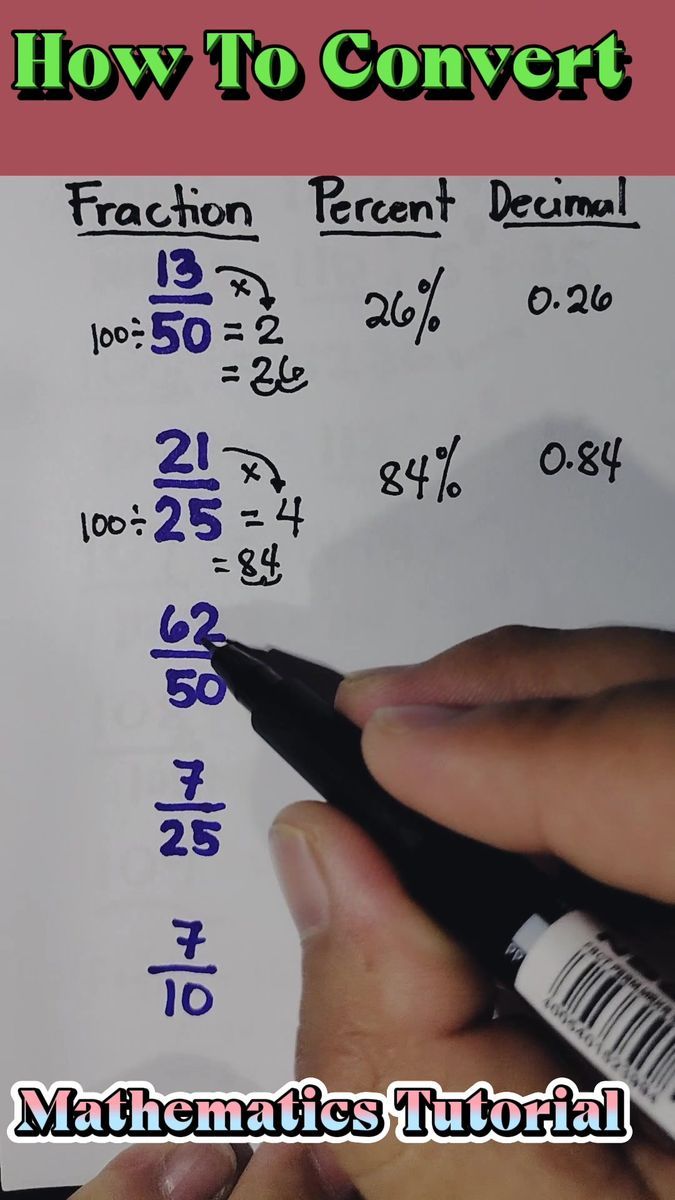 How To Convert
Fraction Percent Decimal
13
100÷50 = 2
×
= 26
26% 0.26
21
100÷25 = 4
×
= 84
84% 0.84
62
50
7
25
7
10
Mathematics Tutorial